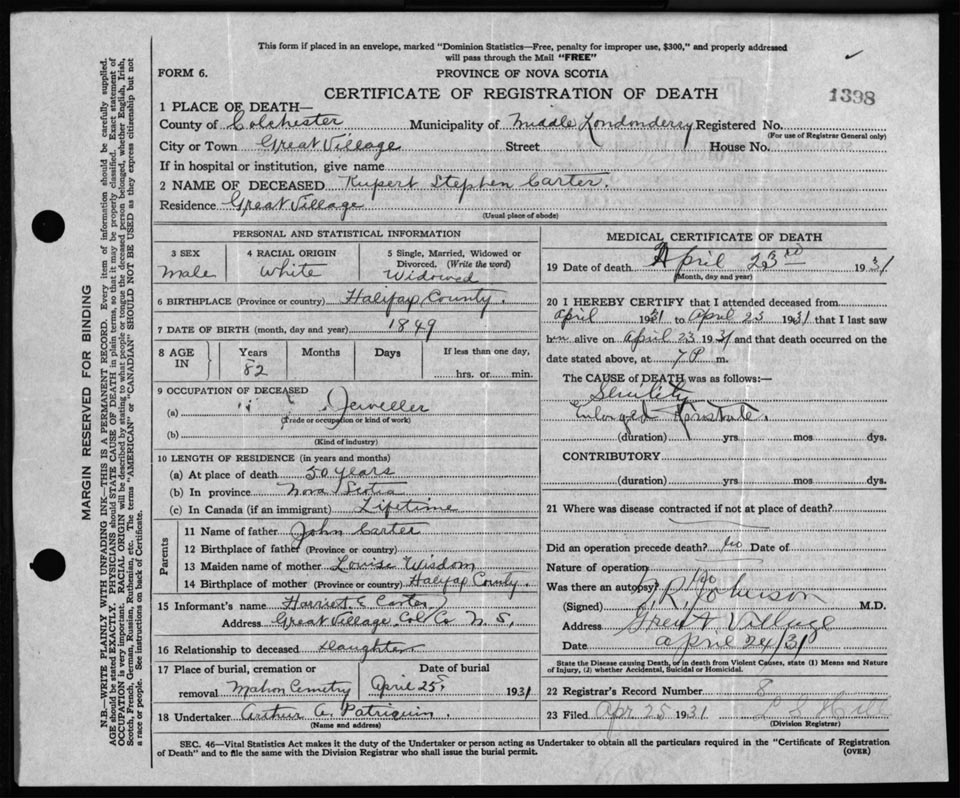 This form if placed in an envelope, marked "Dominion Statistics—Free, penalty for improper use, $300," and properly addressed
will pass through the Mail "FREE"
FORM 6.
PROVINCE OF NOVA SCOTIA
CERTIFICATE OF REGISTRATION OF DEATH
1398
1 PLACE OF DEATH—
County of Colchester Municipality of Middle Londonderry Registered No.
(For use of Registrar General only)
City or Town Great Village Street House No.
If in hospital or institution, give name
2 NAME OF DECEASED Rupert Stephen Carter.
Residence Great Village
(Usual place of abode)
PERSONAL AND STATISTICAL INFORMATION
3 SEX male
4 RACIAL ORIGIN White
5 Single, Married, Widowed or
Divorced. (Write the word)
Widowed
6 BIRTHPLACE (Province or country) Halifax County.
7 DATE OF BIRTH (month, day and year) 1849
8 AGE IN
Years Months Days If less than one day,
82 hrs. or min.
9 OCCUPATION OF DECEASED
(a) Jeweller
(Trade or occupation or kind of work)
(b)
(Kind of industry)
10 LENGTH OF RESIDENCE (in years and months)
(a) At place of death 50 years
(b) In province Nova Scotia
(c) In Canada (if an immigrant) Lifetime
Parents
11 Name of father John Carter
12 Birthplace of father (Province or country)
13 Maiden name of mother Louise Wisdom
14 Birthplace of mother (Province or country) Halifax County.
15 Informant's name Harriet E Carter
Address Great Village Col Co N. S.
16 Relationship to deceased Daughter
17 Place of burial, cremation or Date of burial
removal Mahon Cemetry April 25 1931
18 Undertaker Arthur A. Patriquin.
(Name and address)
MEDICAL CERTIFICATE OF DEATH
19 Date of death April 23rd 1931
(Month, day and year)
20 I HEREBY CERTIFY that I attended deceased from
April 1931 to April 23 1931 that I last saw
him alive on April 23 1931 and that death occurred on the
date stated above, at 7 P m.
The CAUSE of DEATH was as follows:—
Senility
Enlarged Prostate.
(duration) yrs. mos dys.
CONTRIBUTORY
(duration) yrs. mos. dys.
21 Where was disease contracted if not at place of death?
Did an operation precede death? No Date of
Nature of operation
Was there an autopsy? No
(Signed) M.D.
Address Great Village
Date April 24/31
State the Disease causing Death, or in death from Violent Causes, state (1) Means and Nature
of Injury, (2) whether Accidental, Suicidal or Homicidal.
22 Registrar's Record Number 8
23 Filed Apr 25 1931 L S Hill
(Division Registrar)
SEC. 46—Vital Statistics Act makes it the duty of the Undertaker or person acting as Undertaker to obtain all the particulars required in the "Certificate of Registration
of Death" and to file the same with the Division Registrar who shall issue the burial permit. (OVER)
MARGIN RESERVED FOR BINDING
N.B.—WRITE PLAINLY WITH UNFADING INK—THIS IS A PERMANENT RECORD. Every item of information should be carefully supplied.
AGE should be stated EXACTLY. PHYSICIANS should STATE CAUSE OF DEATH in plain terms, so that it may be properly classified. Exact statement of
OCCUPATION is very important. RACIAL ORIGIN will be described by stating to what people or tongue the deceased person belonged, whether English, Irish,
Scotch, French, German, Russian, Ruthenian, etc. The terms "AMERICAN" or "CANADIAN" SHOULD NOT BE USED as they express citizenship but not
a race or people. See instructions on back of Certificate.